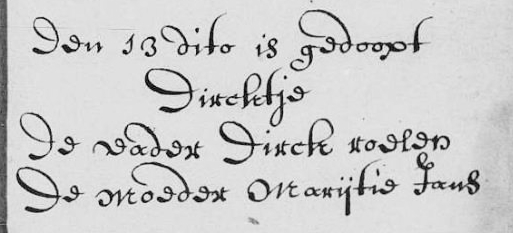 Den 13 dito is gedoopt
Dircktje
De vader Dirck roelen
De Moeder Marijtie Jans